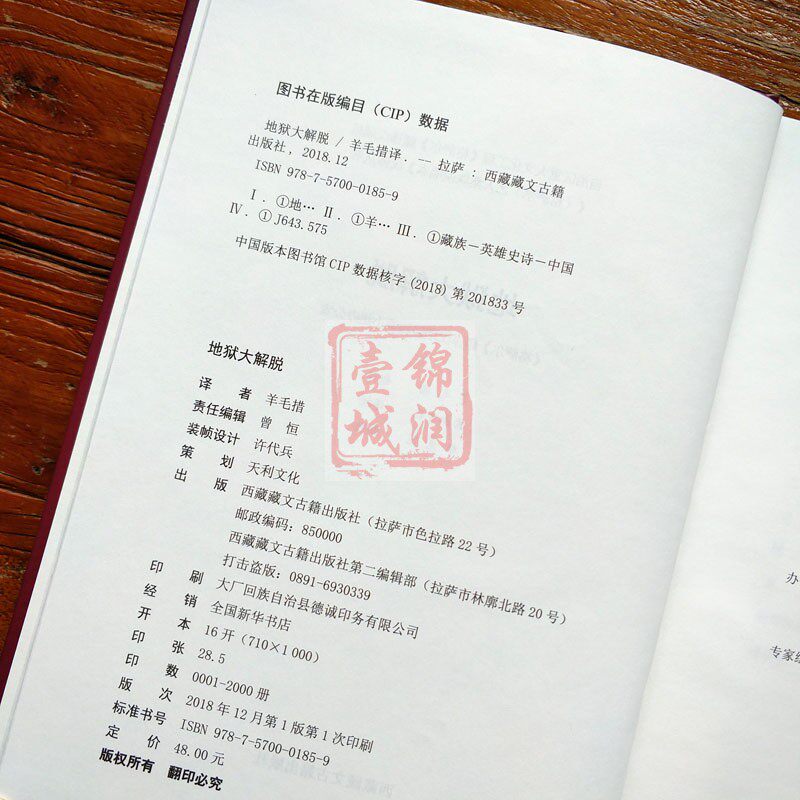 图书在版编目（CIP）数据
地狱大解脱 / 羊毛措译. — 拉萨 : 西藏藏文古籍
出版社, 2018.12
ISBN 978-7-5700-0185-9
Ⅰ. ①地… Ⅱ. ①羊… Ⅲ. ①藏族—英雄史诗—中国
Ⅳ. ① J643.575
中国版本图书馆 CIP 数据核字 (2018) 第 201833 号
地狱大解脱
译 者 羊毛措
责任编辑 曾 恒
装帧设计 许代兵
策 划 天利文化
出 版 西藏藏文古籍出版社（拉萨市色拉路 22 号）
邮政编码：850000
西藏藏文古籍出版社第二编辑部（拉萨市林廓北路 20 号）
打击盗版：0891-6930339
印 刷 大厂回族自治县德诚印务有限公司
经 销 全国新华书店
开 本 16 开 (710×1 000)
印 张 28.5
印 数 0001-2000 册
版 次 2018 年 12 月第 1 版第 1 次印刷
标准书号 ISBN 978-7-5700-0185-9
定 价 48.00 元
版权所有 翻印必究
锦润
壹城
办
专家